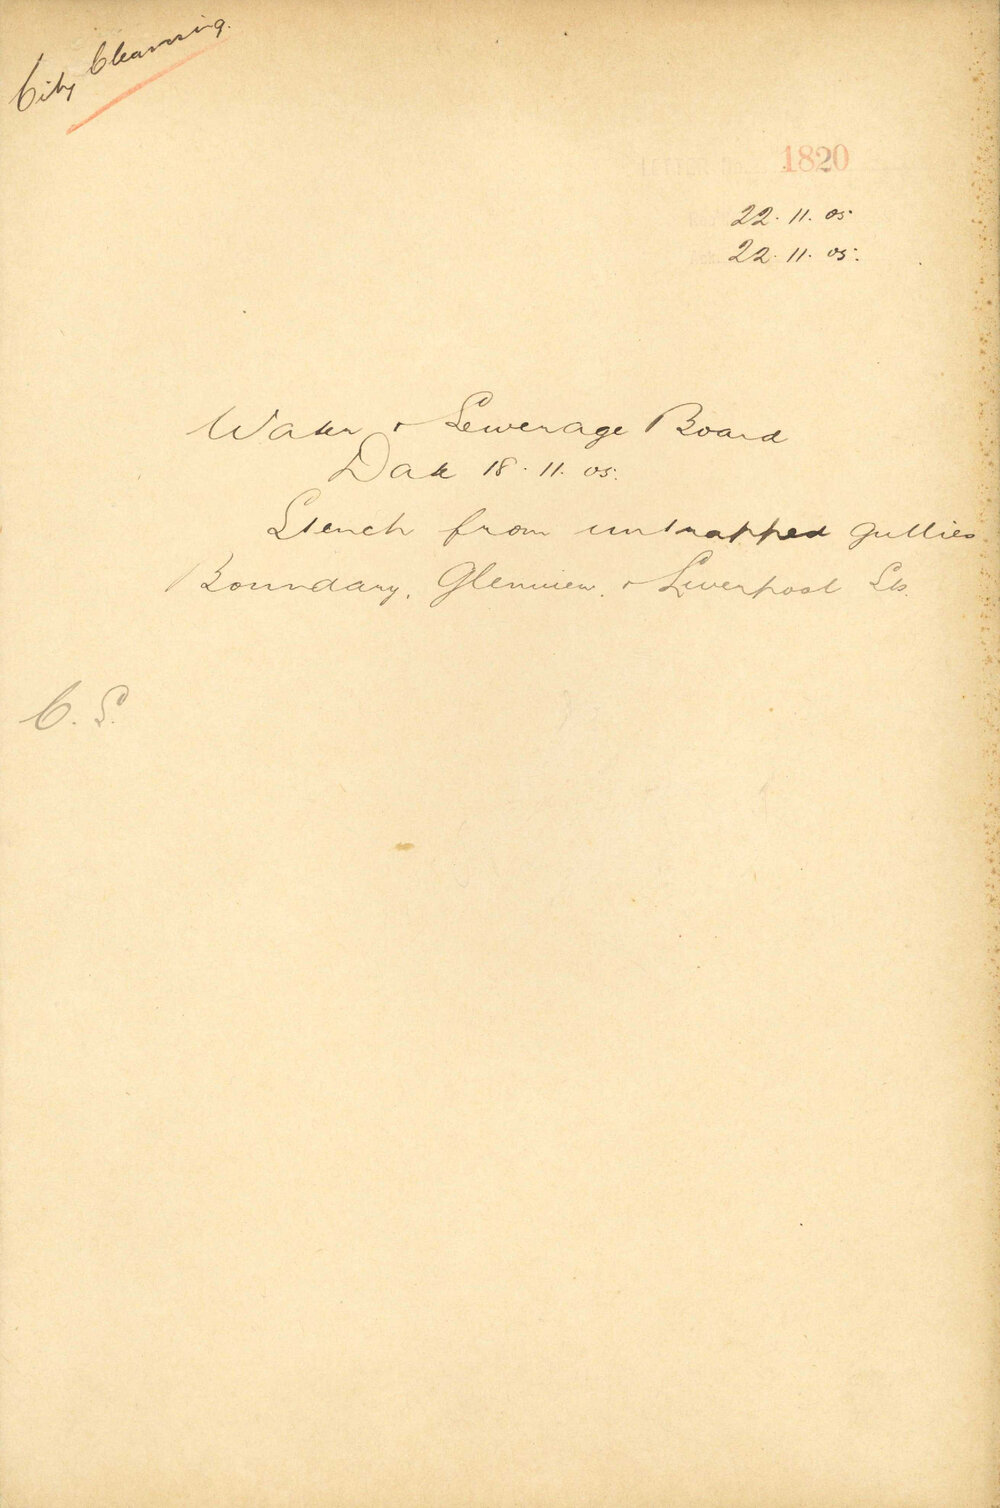 City Cleansing.
LETTER No. 1820
22.11.05
22.11.05.
Water & Sewerage Board
Date 18.11.05.
Stench from untrapped gullies
Boundary, Glenview, & Liverpool Sts.
C.S.